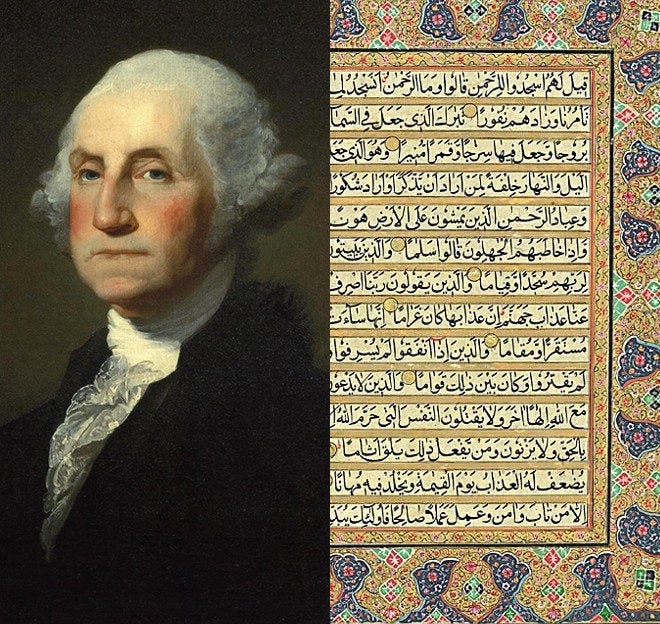 قِيلَ لَهُمُ اسْجُدُوا لِلرَّحْمٰنِ قَالُوا وَمَا الرَّحْمٰنُ اَنَسْجُدُ
تَأْمُرُنَا وَزَادَهُمْ نُفُورًا تَبٰرَكَ الَّذِي جَعَلَ فِي السَّمَا
بُرُوجًا وَجَعَلَ فِيهَا سِرٰجًا وَقَمَرًا مُنِيرًا وَهُوَ الَّذِي جَعَ
الَّيْلَ وَالنَّهَارَ خِلْفَةً لِمَنْ اَرَادَ اَنْ يَذَّكَّرَ اَوْ اَرَادَ شُكُور
وَعِبَادُ الرَّحْمٰنِ الَّذِينَ يَمْشُونَ عَلَى الْاَرْضِ هَوْن
وَاِذَا خَاطَبَهُمُ الْجٰهِلُونَ قَالُوا سَلٰمًا وَالَّذِينَ يَبِيتُونَ
لِرَبِّهِمْ سُجَّدًا وَقِيَامًا وَالَّذِينَ يَقُولُونَ رَبَّنَا اصْرِفْ
عَنَّا عَذَابَ جَهَنَّمَ اِنَّ عَذَابَهَا كَانَ غَرَامًا اِنَّهَا سَاءَتْ
مُسْتَقَرًّا وَمُقَامًا وَالَّذِينَ اِذَا اَنْفَقُوا لَمْ يُسْرِفُوا وَ
لَمْ يَقْتُرُوا وَكَانَ بَيْنَ ذٰلِكَ قَوَامًا وَالَّذِينَ لَا يَدْعُونَ
مَعَ اللّٰهِ اِلٰهًا اٰخَرَ وَلَا يَقْتُلُونَ النَّفْسَ الَّتِي حَرَّمَ اللّٰهُ
بِالْحَقِّ وَلَا يَزْنُونَ وَمَنْ يَفْعَلْ ذٰلِكَ يَلْقَ اَثَامًا
يُضٰعَفْ لَهُ الْعَذَابُ يَوْمَ الْقِيٰمَةِ وَيَخْلُدْ فِيهِ مُهَانًا
اِلَّا مَنْ تَابَ وَاٰمَنَ وَعَمِلَ عَمَلًا صَالِحًا فَاُولٰئِكَ يُبَد